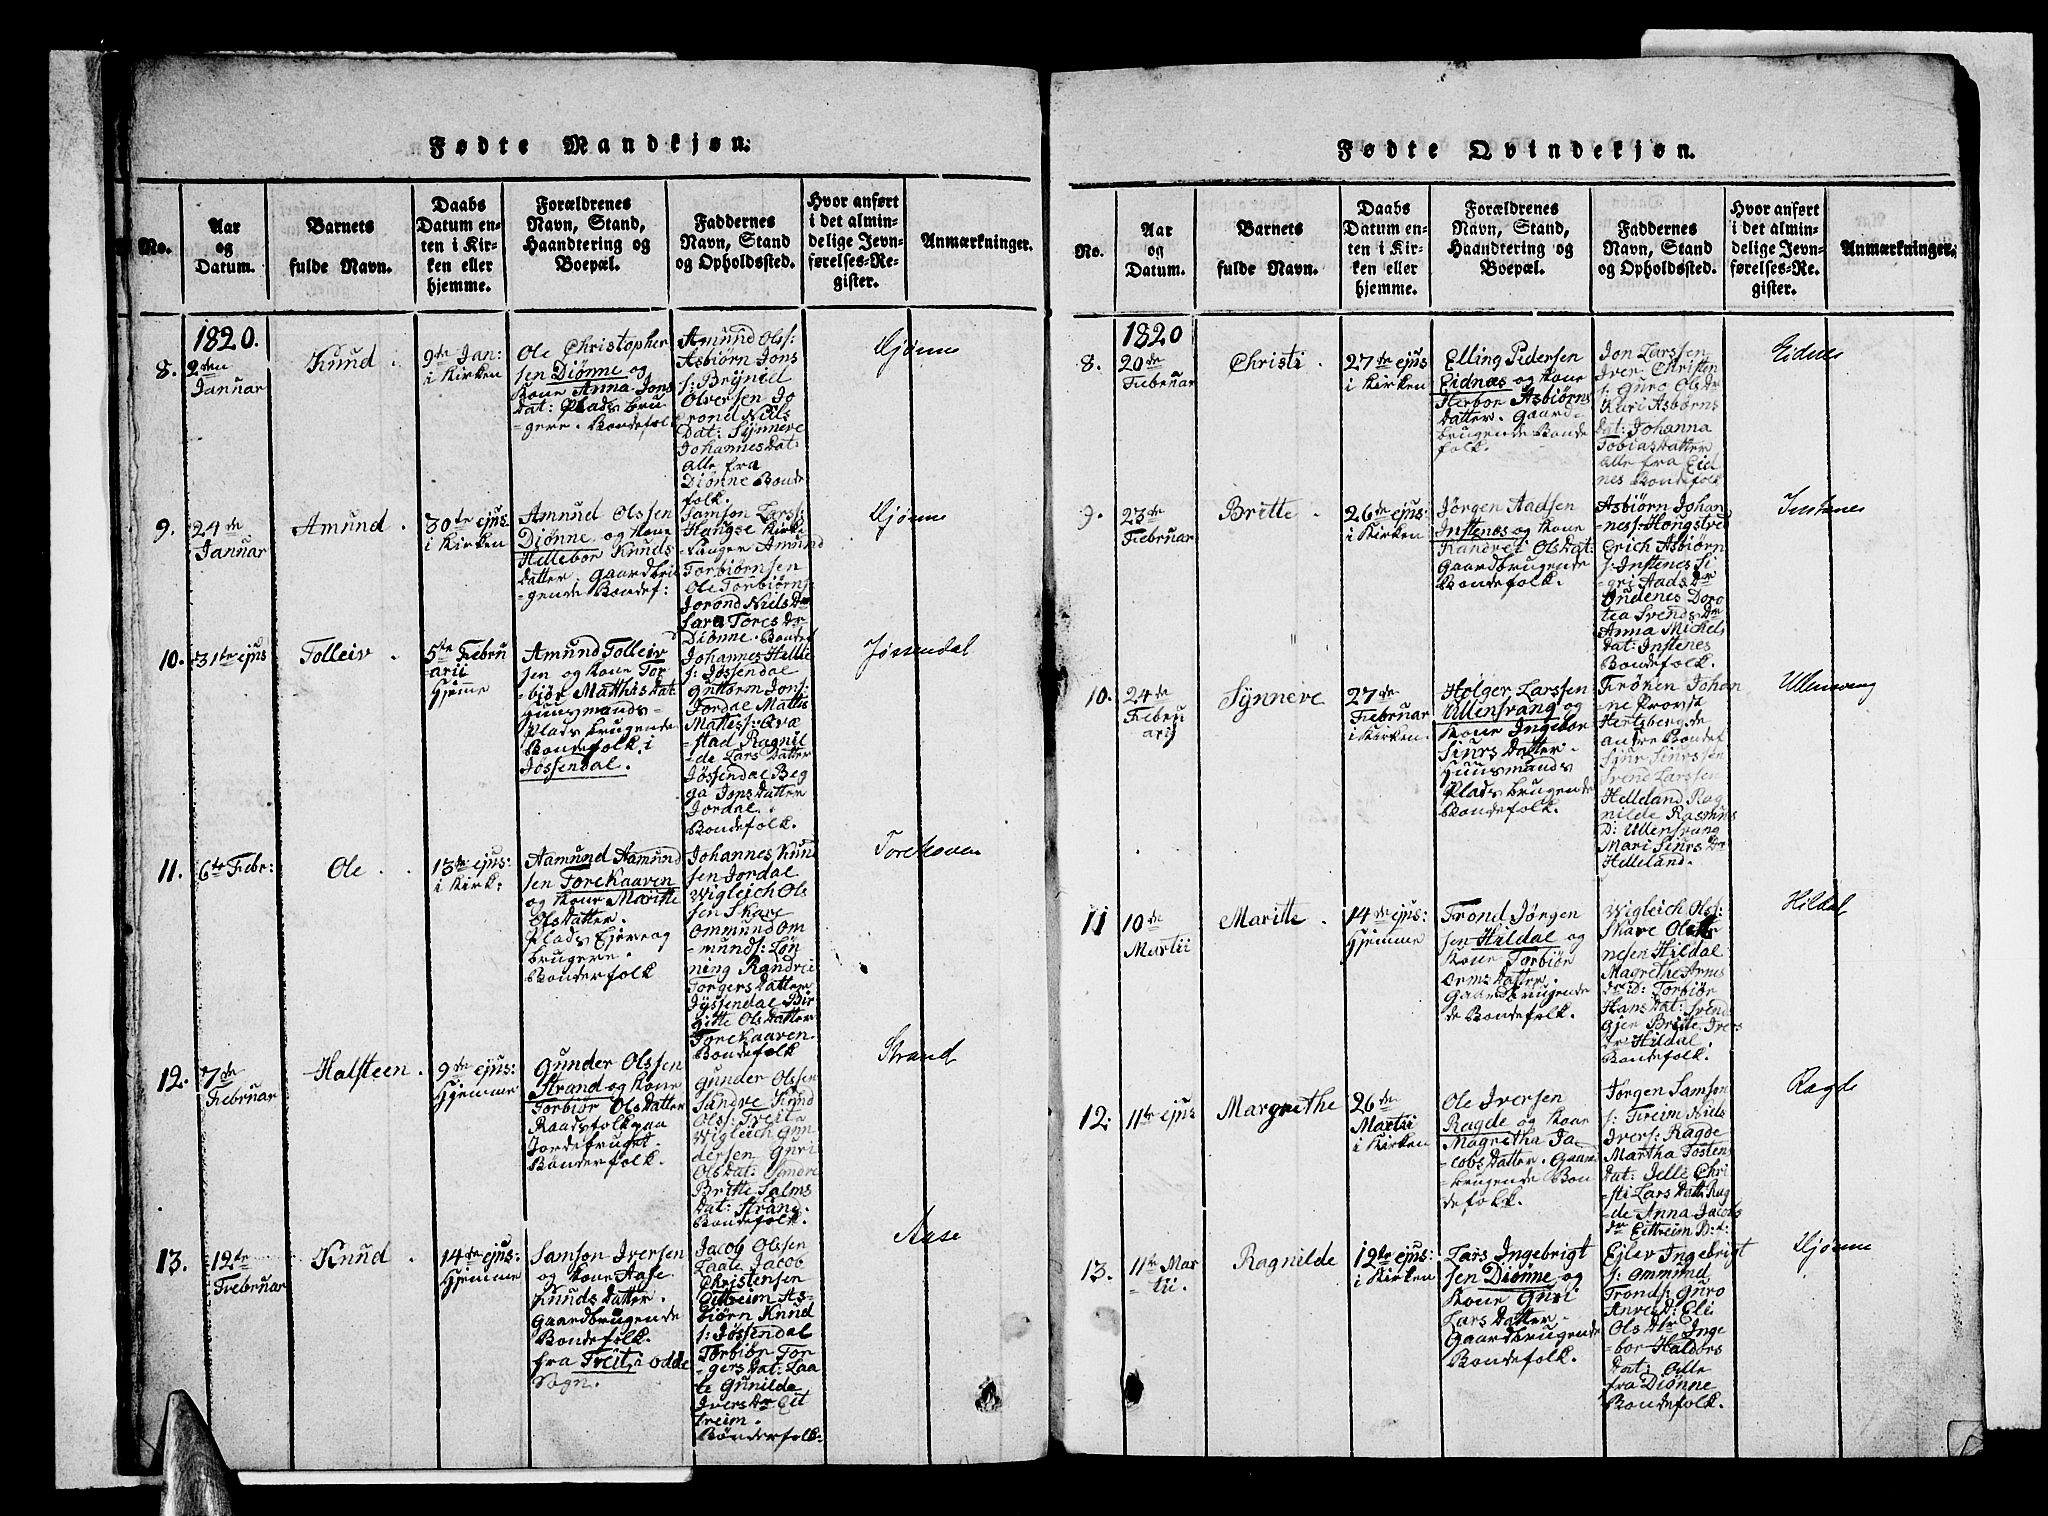 Fødte Mandkjøn.
No.
Aar
og
Datum.
Barnets
fulde Navn.
Daabs
Datum en-
ten i Kir-
ken eller
hjemme.
Forældrenes
Navn, Stand,
Haandtering og
Boepæl.
Faddernes
Navn, Stand
og Opholdssted.
Hvor anført
i det almin-
delige Jevn-
førelses-Re-
gister.
Anmærkninger.
1820.
8.
2den
Januar
Knud
9de Jan:
i Kirken
Ole Christopher
sen Diønne og
Kone Anna Jons
Dat: Plads bru
-gere. Bondefolk
Amund Olss:
Asbiørn Jons
s: Brÿnild
Olversen Jo
rond Niels
Dat: Sÿnneve
Johannes Dat:
alle fra
Diønne Bonde
folk.
Djønne
9.
24de
Januar
Amund
30te ejus:
i Kirken
Amund Olssen
Diønne og Kone
Hellebor Knuds
datter, Gaardbru
-gende Bondef:
Samson Larss:
Hougse Kirke
sanger Amund
Torbiørnsen
Ole Torbiørns:
Jorond Niels Dr
Sara Tores Dr
Diønne. Bondef
Djønne
10.
31te ejus
Tolleiv
5te Febru
arii
Hjemme
Amund Tolleiv
sen og Kone Tor
-biør Matthis Dat:
Huusmands-
Plads brugende
Bondefolk i
Jøssendal.
Johannes Helje
s: Jøssendal
Guttorm Jons:
Jordal Mattis
Mattiss: Qvæ
-stad Ragnil
-de Lars Datter
Jøssendal Beg
ga Jons Datter
Jordal.
Bondefolk.
Jøssendal
11.
6te Febr:
Ole
13de ejus:
i Kirk:
Aamund Aamund
sen Torekaaven
og Kone Maritte
Ols Datter.
Plads Ejere og
brugere.
Bonderfolk
Johannes Knud
sen Jordal
Wigleich Ols
sen Skare
Ommund Om
-munds: Løn
ning Randvei
Torgers Datter
Jÿssendal Bir
gitte Ols Datter
Torekaaven
Bondefolk
Torekoven
12.
7de
Februar
Halsteen
9de ejus:
Hjemme
Gunder Olssen
Strand og Kone
Torbiør Ols Datter
Raadsfolk paa
Jordebruget.
Bønderfolk.
Gunder Olssen
Sandve Knud
Olss: Freite
Wigleich Gun
dersen Guri
Ols Dat: Sandve
Britte Salms
Dat: Strand.
Bondefolk.
Strand
13.
12te
Februar
Knud
14de ejus:
Hjemme
Samson Iversen
og Kone Aase
Knuds Datter.
Gaardbrugende
Bondefolk.
fra Freite i Odde
Sogn.
Jacob Olssen
Laate Jacob
Christensen
Eittreim As-
biørn Knud
s: Jøssendal
Torbiør Tor
-gers Dat: Laa
te Gunilde
Ivers Dr Eit
treim.
Bønderfolk.
Aase
Fødte Qvindekjøn.
No.
Aar
og
Datum.
Barnets
fulde Navn.
Daabs
Datum en-
ten i Kir-
ken eller
hjemme.
Forældrenes
Navn, Stand,
Haandtering og
Boepæl.
Faddernes
Navn, Stand
og Opholdssted.
Hvor anført
i det almin-
delige Jevn-
førelses-Re-
gister.
Anmærkninger.
1820
8.
20de
Februar
Christi
27de ejus
i Kirken
Elling Pedersen
Eidnæs og Kone
Herbor Asbiørns
Datter. Gaard-
brugende Bonde
folk.
Jon Larssen
Iver Christen
s: Guro Ols Dr
Kari Asbiørns
Dat: Johanna
Tobias Datter
alle fra Eid
nes Bondefolk
9.
23de
Februar
Britte
26de ejus:
i Kirken
Jørgen Aadsen
Instenes og Kone
Randvei Ols Dat:
Gaardbrugende
Bondefolk.
Asbiørn Johan
ness: Hongstved
Erich Asbiørn
s: Instenes Si
-gri Aads Dr
Undenes Doro
tea Svends Dr
Anna Michels
Dat: Instenes
Bondefolk.
Instenes
10.
24de
Febru
arij
Sÿnneve
27de
Februar
i Kirken.
Holger Larssen
Ullensvang og
Kone Ingebor
Siurs Datter.
Huusmands
Plads brugende
Bondefolk.
Frøken Johan
-ne Provsk
Hertzberg. de
andre Bondef
Siur Siurssen
Svend Larssen
Helleland Rag
nilde Rasmus
D: Ullensvang
Mari Siurs Dr
Helleland.
Ullensvang
11
10de
Martii
Maritte
14de ejus:
Hjemme
Trond Jørgen
sen Hildal og
Kone Torbiør
Orms Datter.
Gaardbrugende
Bondefolk.
Wigleich Olss:
Skare
Hildal
Magrethe Arnes
Torbiør
Hans Dat:
Britte Ivers
Dr Hildal.
Bondefolk.
Hildal
12:
11te ejus
Margrethe
26de
Martii
i Kirken
Ole Iversen
Ragde og Kone
Magretha Ja-
-cobs Datter. Gaard
-brugende Bon
defolk.
Jørgen Samson
s: Freim Niels
Ivers: Ragde
Martha Tostens
Dat: Jelle Chri
-sti Lars Datt: Rag
-de Anna Jacobs
Dr Eittreim B:d:
Ragde
13.
11te Mar
-tii.
Ragnilde
12te ejus:
i Kirken
Lars Ingebrigt
sen Diønne og
Kone Guri
Lars Datter.
Gaardbrugende
Bondefolk.
Ejlev Ingebrigt
s: Ommund
Tronds: Guro
Anved: Eli
Ols Dtr Inge
-bor Haldors
Dat: alle
fra Diønne
Bondefolk.
Djønne